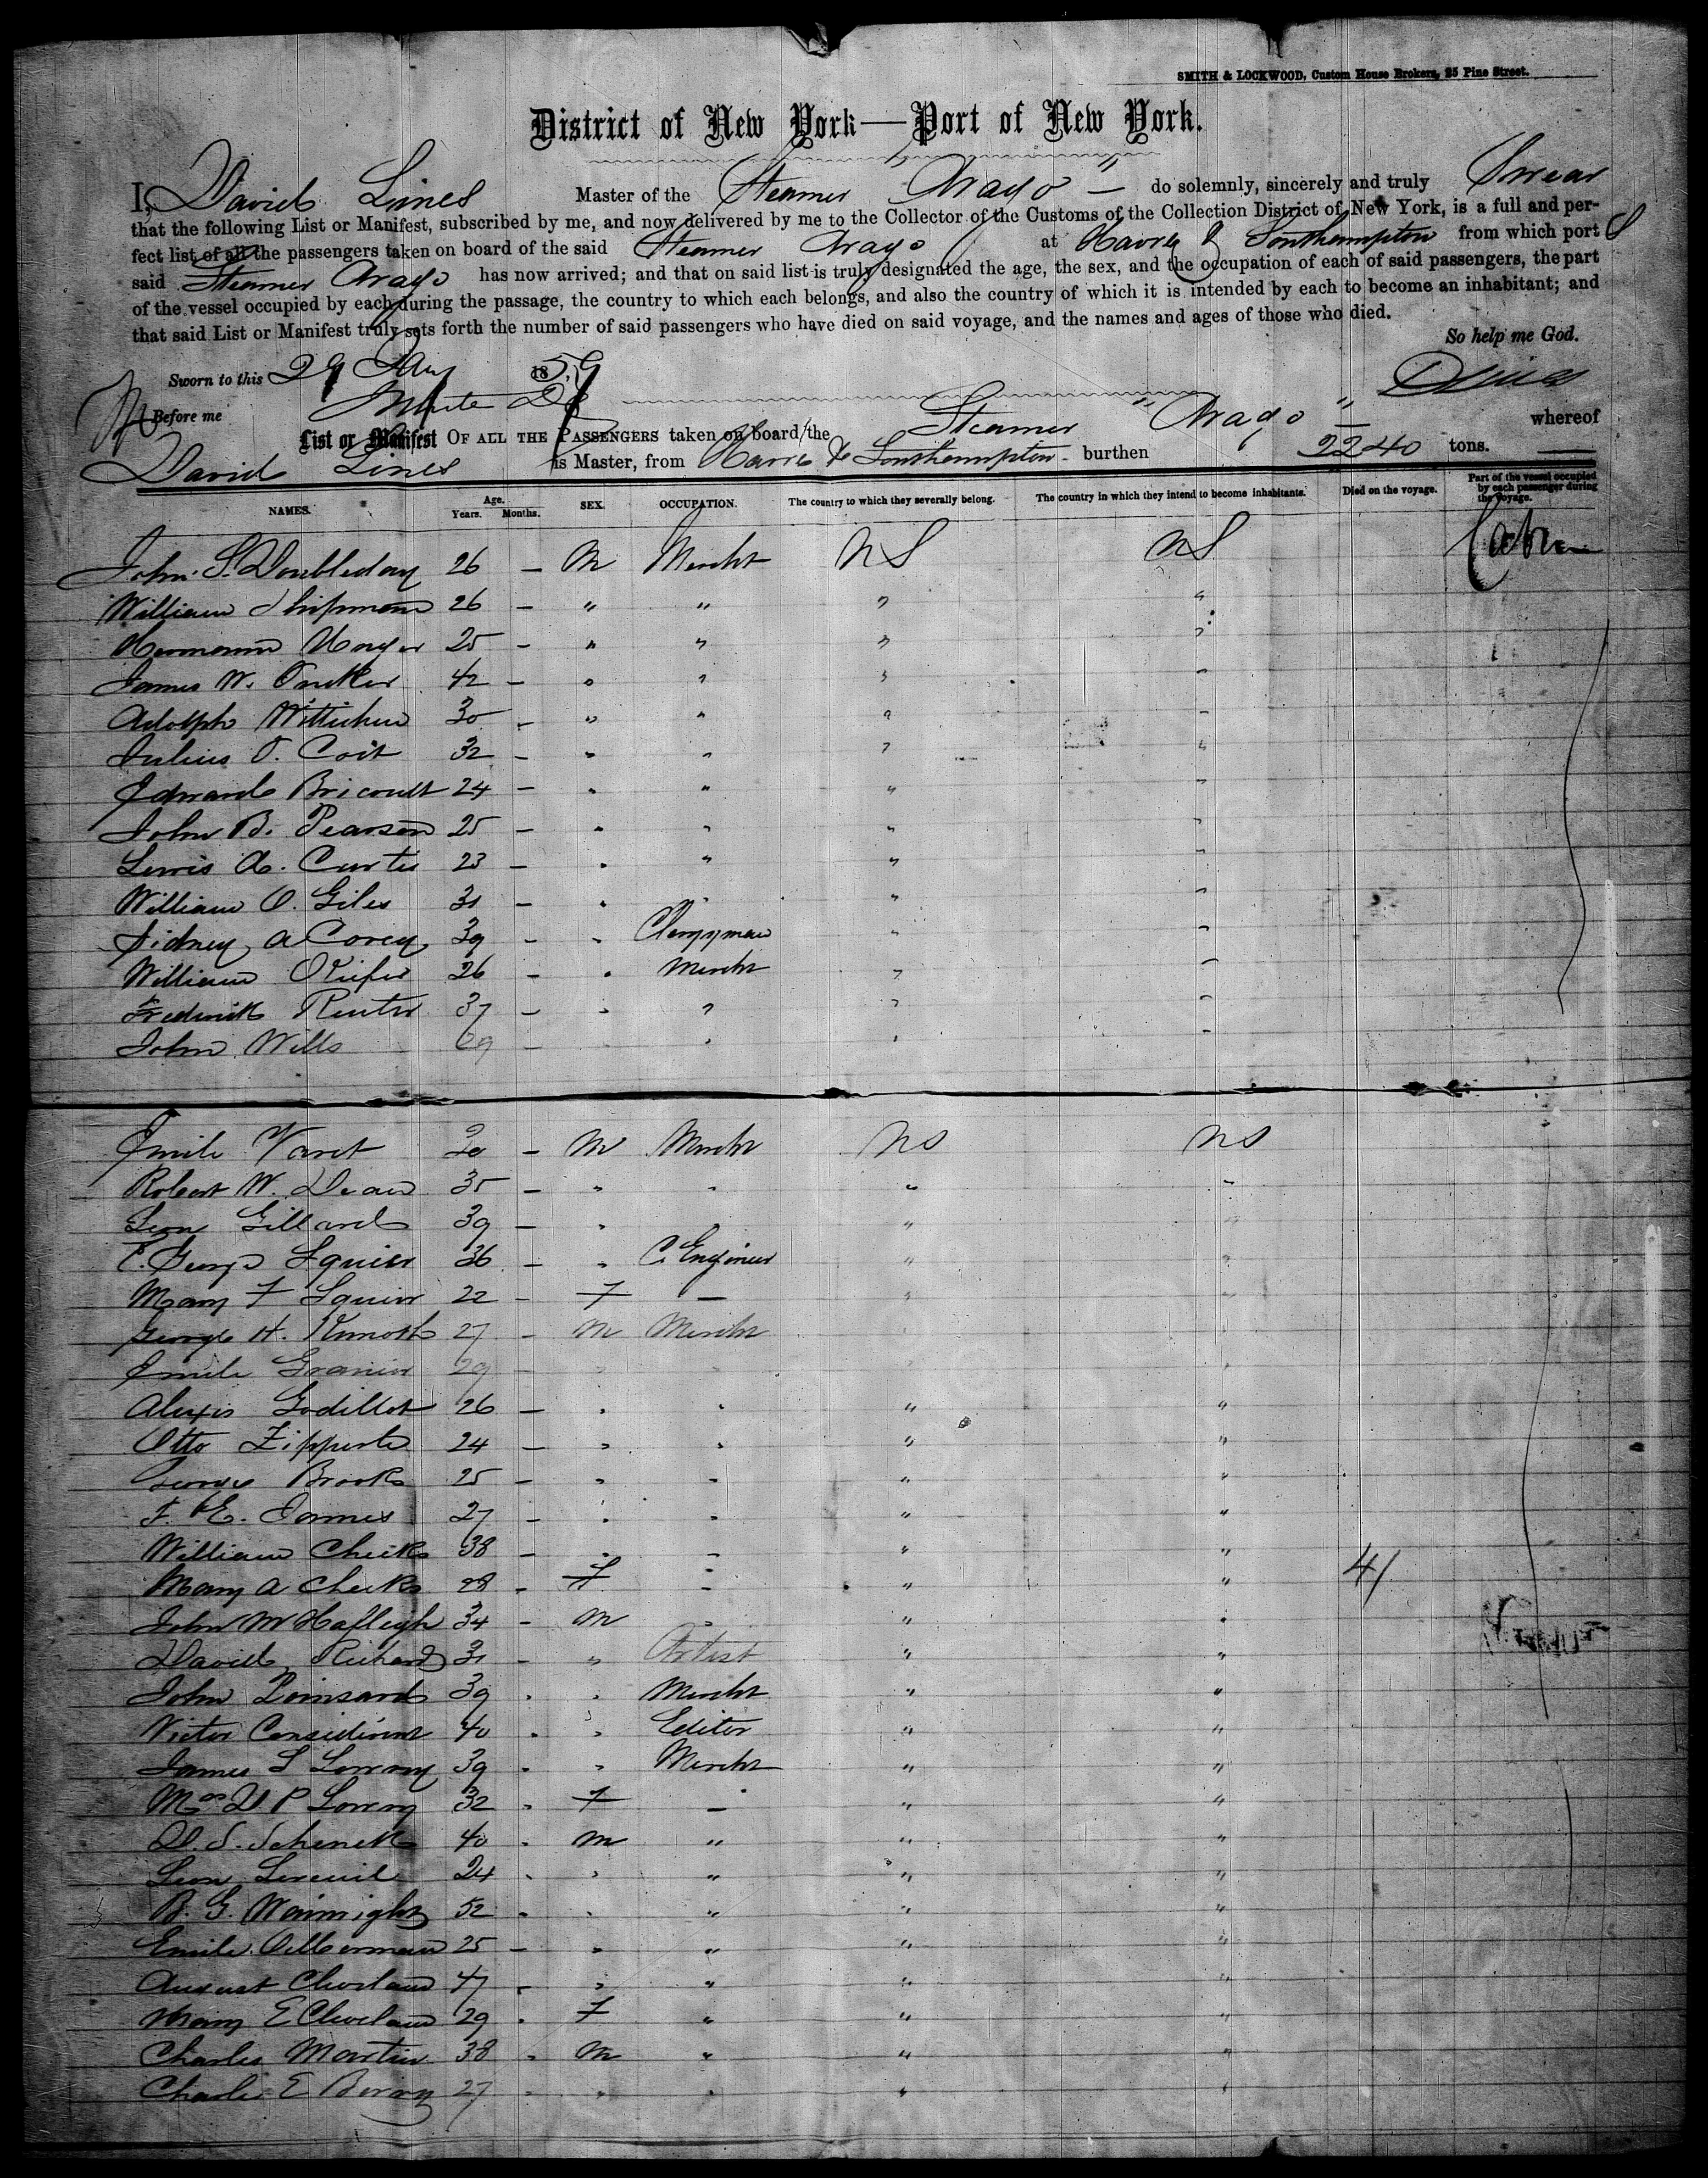 SMITH & LOCKWOOD, Custom House Brokers, 25 Pine Street.
District of New York—Port of New York.
I, David Lines Master of the Steamer "Arago" — do solemnly, sincerely and truly Swear
that the following List or Manifest, subscribed by me, and now delivered by me to the Collector of the Customs of the Collection District of New York, is a full and per-
fect list of all the passengers taken on board of the said Steamer Arago at Havre & Southampton from which port S
said Steamer Arago has now arrived; and that on said list is truly designated the age, the sex, and the occupation of each of said passengers, the part
of the vessel occupied by each during the passage, the country to which each belongs, and also the country of which it is intended by each to become an inhabitant; and
that said List or Manifest truly sets forth the number of said passengers who have died on said voyage, and the names and ages of those who died.
So help me God.
Sworn to this 29 1859
Before me
List or Manifest OF ALL THE PASSENGERS taken on board the Steamer "Arago" whereof
David Lines is Master, from Havre & Southampton - burthen 2240 tons.
NAMES. Age. Years. Months. SEX. OCCUPATION. The country to which they severally belong. The country in which they intend to become inhabitants. Died on the voyage. Part of the vessel occupied by each passenger during the voyage.
John S. Doubleday 26 — M Mercht US US Cabin
William Shipman 26 — " " " "
Hermann Unger 25 — " " " "
James W. 42 — " " " "
Adolph Wittichen 30 — " " " "
Julius O. Coit 32 — " " " "
Edward Bricoult 24 — " " " "
John B. Pearson 25 — " " " "
Lewis A. Curtis 23 — " " " "
William O. Giles 31 — " " " "
Sidney A Corey 39 — " Clergyman " "
William 26 — " Mercht " "
Frederick 37 — " " " "
John Wills 69 — " " " "
Emile Varet 30 — M Mercht US US
Robert W. Dean 35 — " " " "
Leon Gillard 39 — " " " "
E. George Squier 36 — " C. Engineer " "
Mary F Squier 22 — F — " "
George H. 27 — M Mercht " "
Emile Granier 29 — " " " "
Alexis Godillot 26 — " " " "
Otto 24 — " " " "
George Brooks 25 — " " " "
F. E. James 27 — " " " "
William Cheeks 38 — " " " "
Mary A Cheeks 28 — F " " " 41
John M Hafleigh 34 — M " " "
David Richard 31 — " Artist " "
John Poinsard 39 - " Mercht " "
Victor Considerant 40 - " Editor " "
James S Lowry 39 - " Mercht " "
Mrs D P Lowry 32 - F — " "
D. S. Schenck 40 - M " " "
Leon 24 - " " " "
B. G. Wainwright 52 - " " " "
Emile 25 — " " " "
August Cleveland 47 - " " " "
Mary E Cleveland 29 - F " " "
Charles Martin 38 - M " " "
Charles E Berry 27 - " " " "